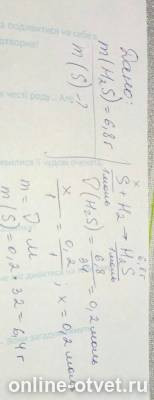 Дано:
m(H2S) = 6,8г
m(S) - ?
x 6,8г
S + H2 → H2S
1моль 1моль
ν(H2S) = 6,8/34 = 0,2 моль
x/1 = 0,2/1 ; x = 0,2 моль
m = ν · M
m(S) = 0,2 · 32 = 6,4 г
online-otvet.ru